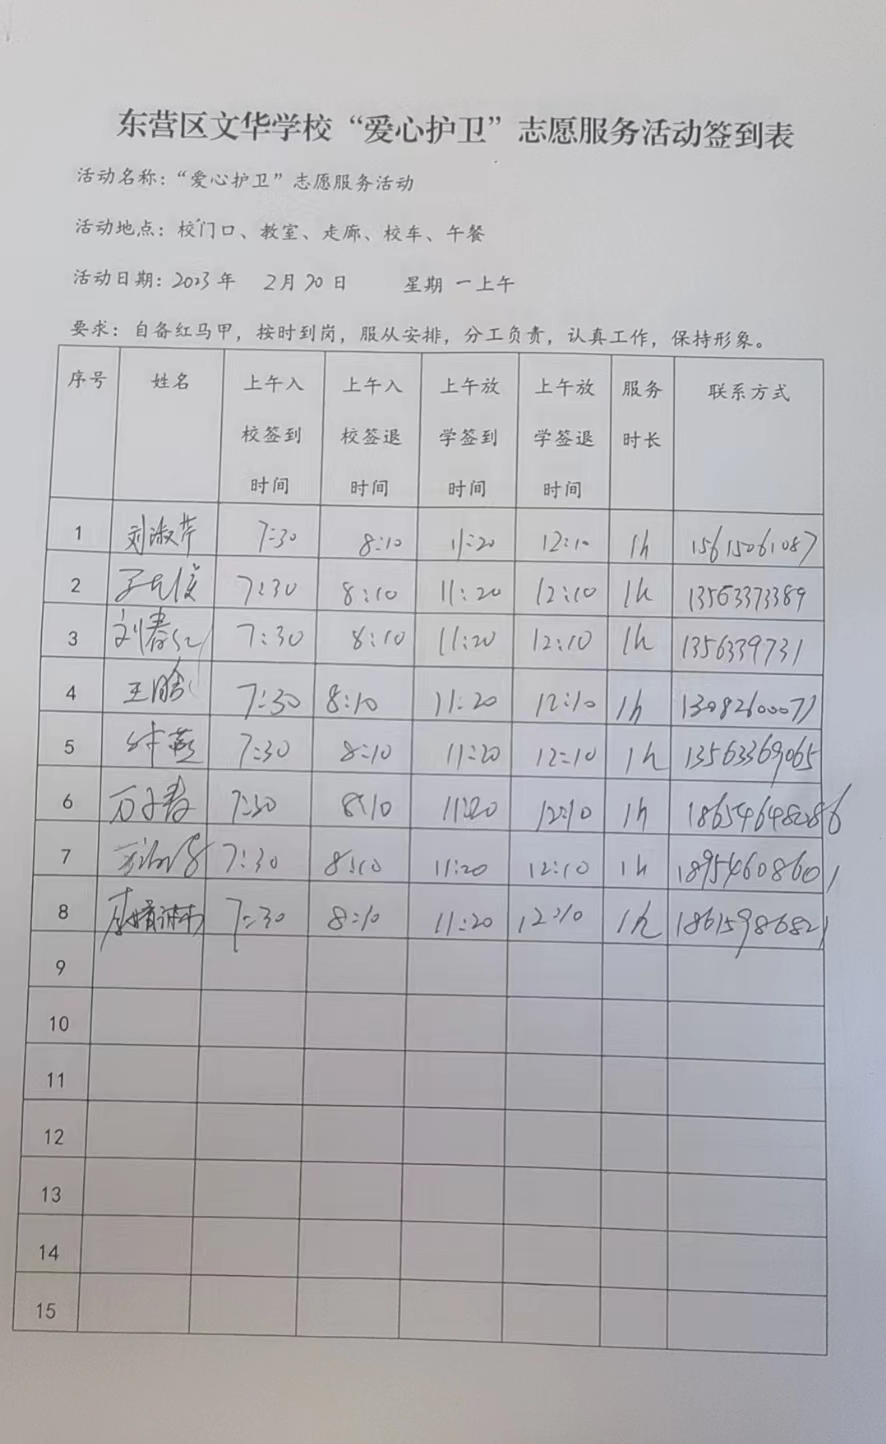 东营区文华学校“爱心护卫”志愿服务活动签到表
活动名称：“爱心护卫”志愿服务活动
活动地点：校门口、教室、走廊、校车、午餐
活动日期：2023年 2月20日 星期 一上午
要求：自备红马甲，按时到岗，服从安排，分工负责，认真工作，保持形象。
序号 姓名 上午入校签到时间 上午入校签退时间 上午放学签到时间 上午放学签退时间 服务时长 联系方式
1 刘淑芹 7:30 8:10 11:20 12:10 1h 15615061087
2 7:30 8:10 11:20 12:10 1h 13563373389
3 刘春红 7:30 8:10 11:20 12:10 1h 1356339731
4 7:30 8:10 11:20 12:10 1h
5 7:30 8:10 11:20 12:10 1h 13563369065
6 7:30 8:10 11:20 12:10 1h 18654648286
7 7:30 8:10 11:20 12:10 1h 18954608601
8 7:30 8:10 11:20 12:10 1h 18615986821
9
10
11
12
13
14
15